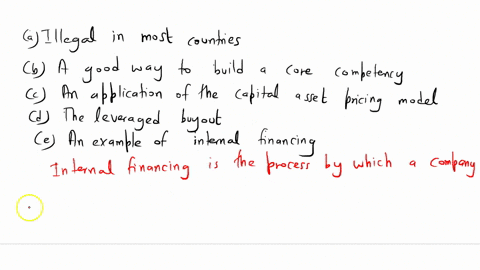 (a) Illegal in most counties
(b) A good way to build a core competency
(c) An application of the capital asset pricing model
(d) The leveraged buyout
(e) An example of internal financing
Internal financing is the process by which a company